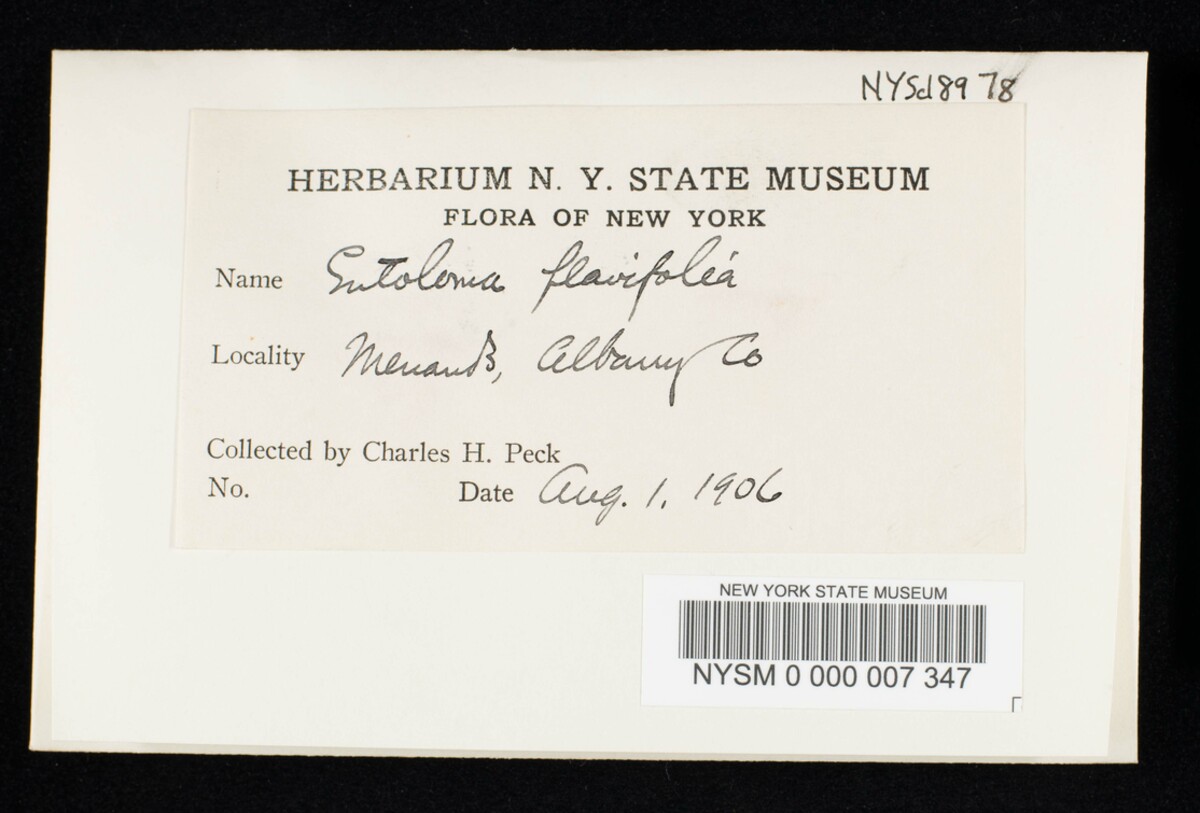 NYSd8978
HERBARIUM N. Y. STATE MUSEUM
FLORA OF NEW YORK
Name Entoloma flavifolia
Locality Menands, Albany Co
Collected by Charles H. Peck
No. Date Aug. 1, 1906
NEW YORK STATE MUSEUM
NYSM 0 000 007 347